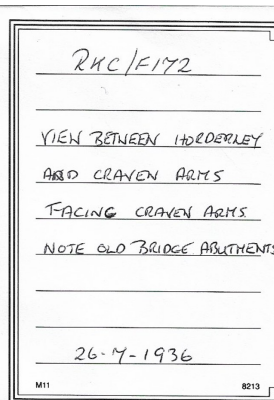 RKC/F172
VIEW BETWEEN HORDERLEY
AND CRAVEN ARMS
FACING CRAVEN ARMS
NOTE OLD BRIDGE ABUTMENTS
26-7-1936
M11 8213